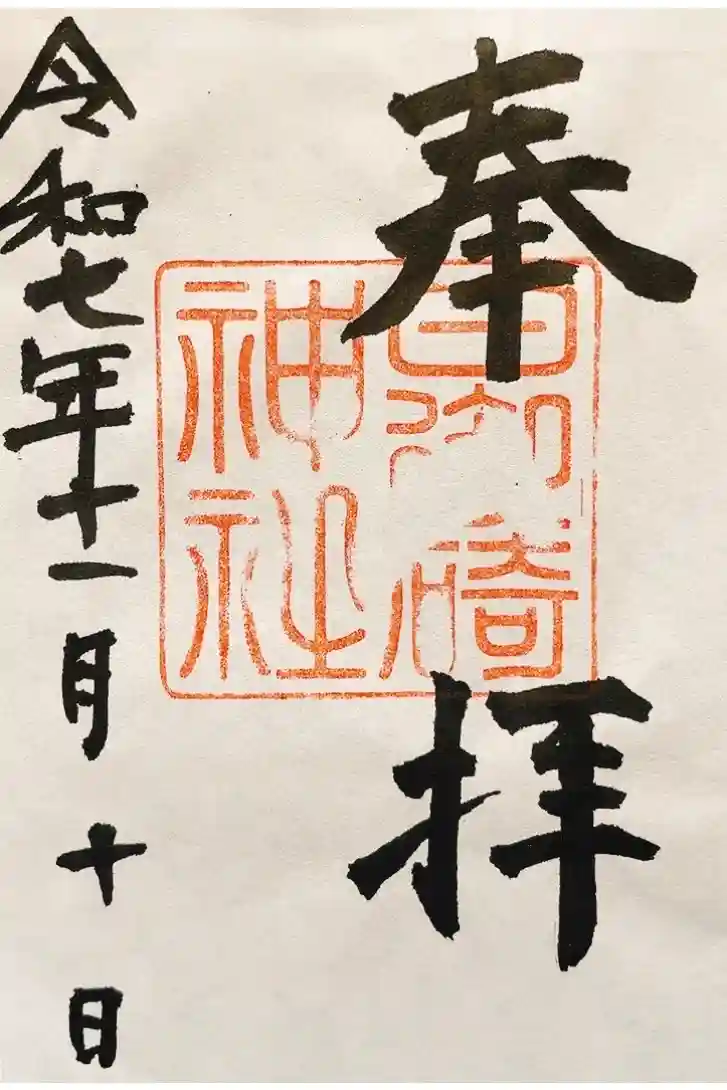 奉拝
碕
神社
令和七年十一月十日